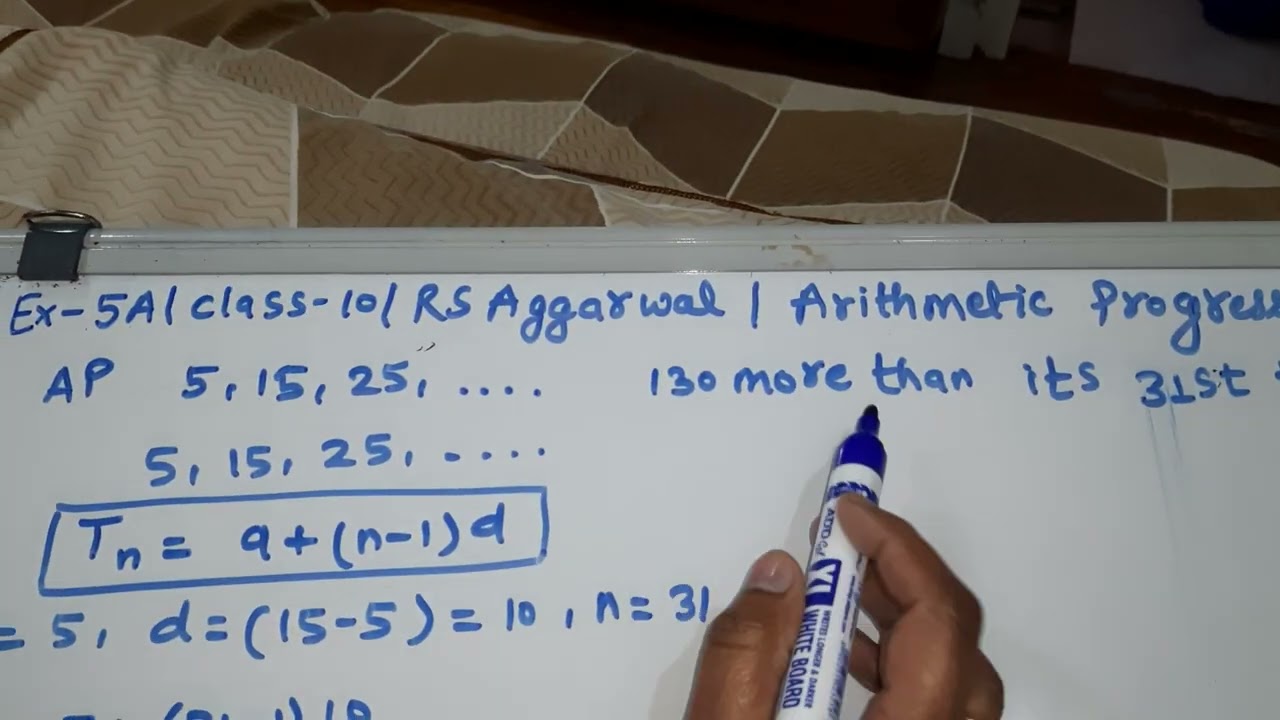 Ex-5A/class-10/RS Aggarwal | Arithmetic Progress
AP 5, 15, 25, .... 130 more than its 31st
5, 15, 25, .....
Tn = a+(n-1)d
= 5, d=(15-5)=10, n=31
WHITE BOARD
WRITES LONGER & DARKER